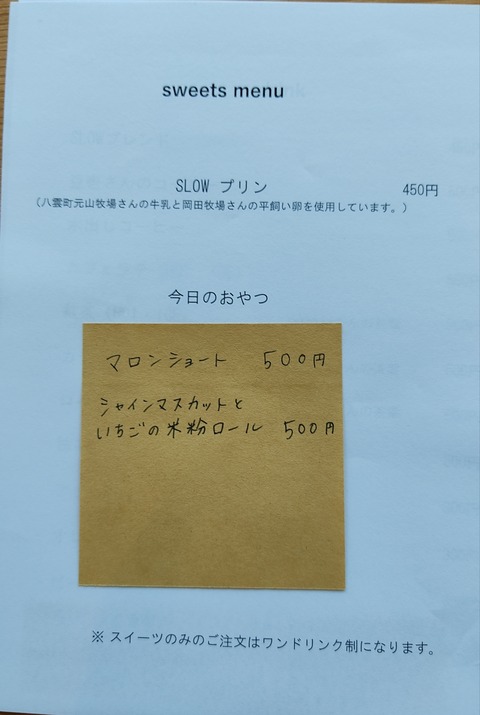 sweets menu
SLOW プリン 450円
(八雲町元山牧場さんの牛乳と岡田牧場さんの平飼い卵を使用しています。)
今日のおやつ
マロンショート 500円
シャインマスカットと
いちごの米粉ロール 500円
※ スイーツのみのご注文はワンドリンク制になります。